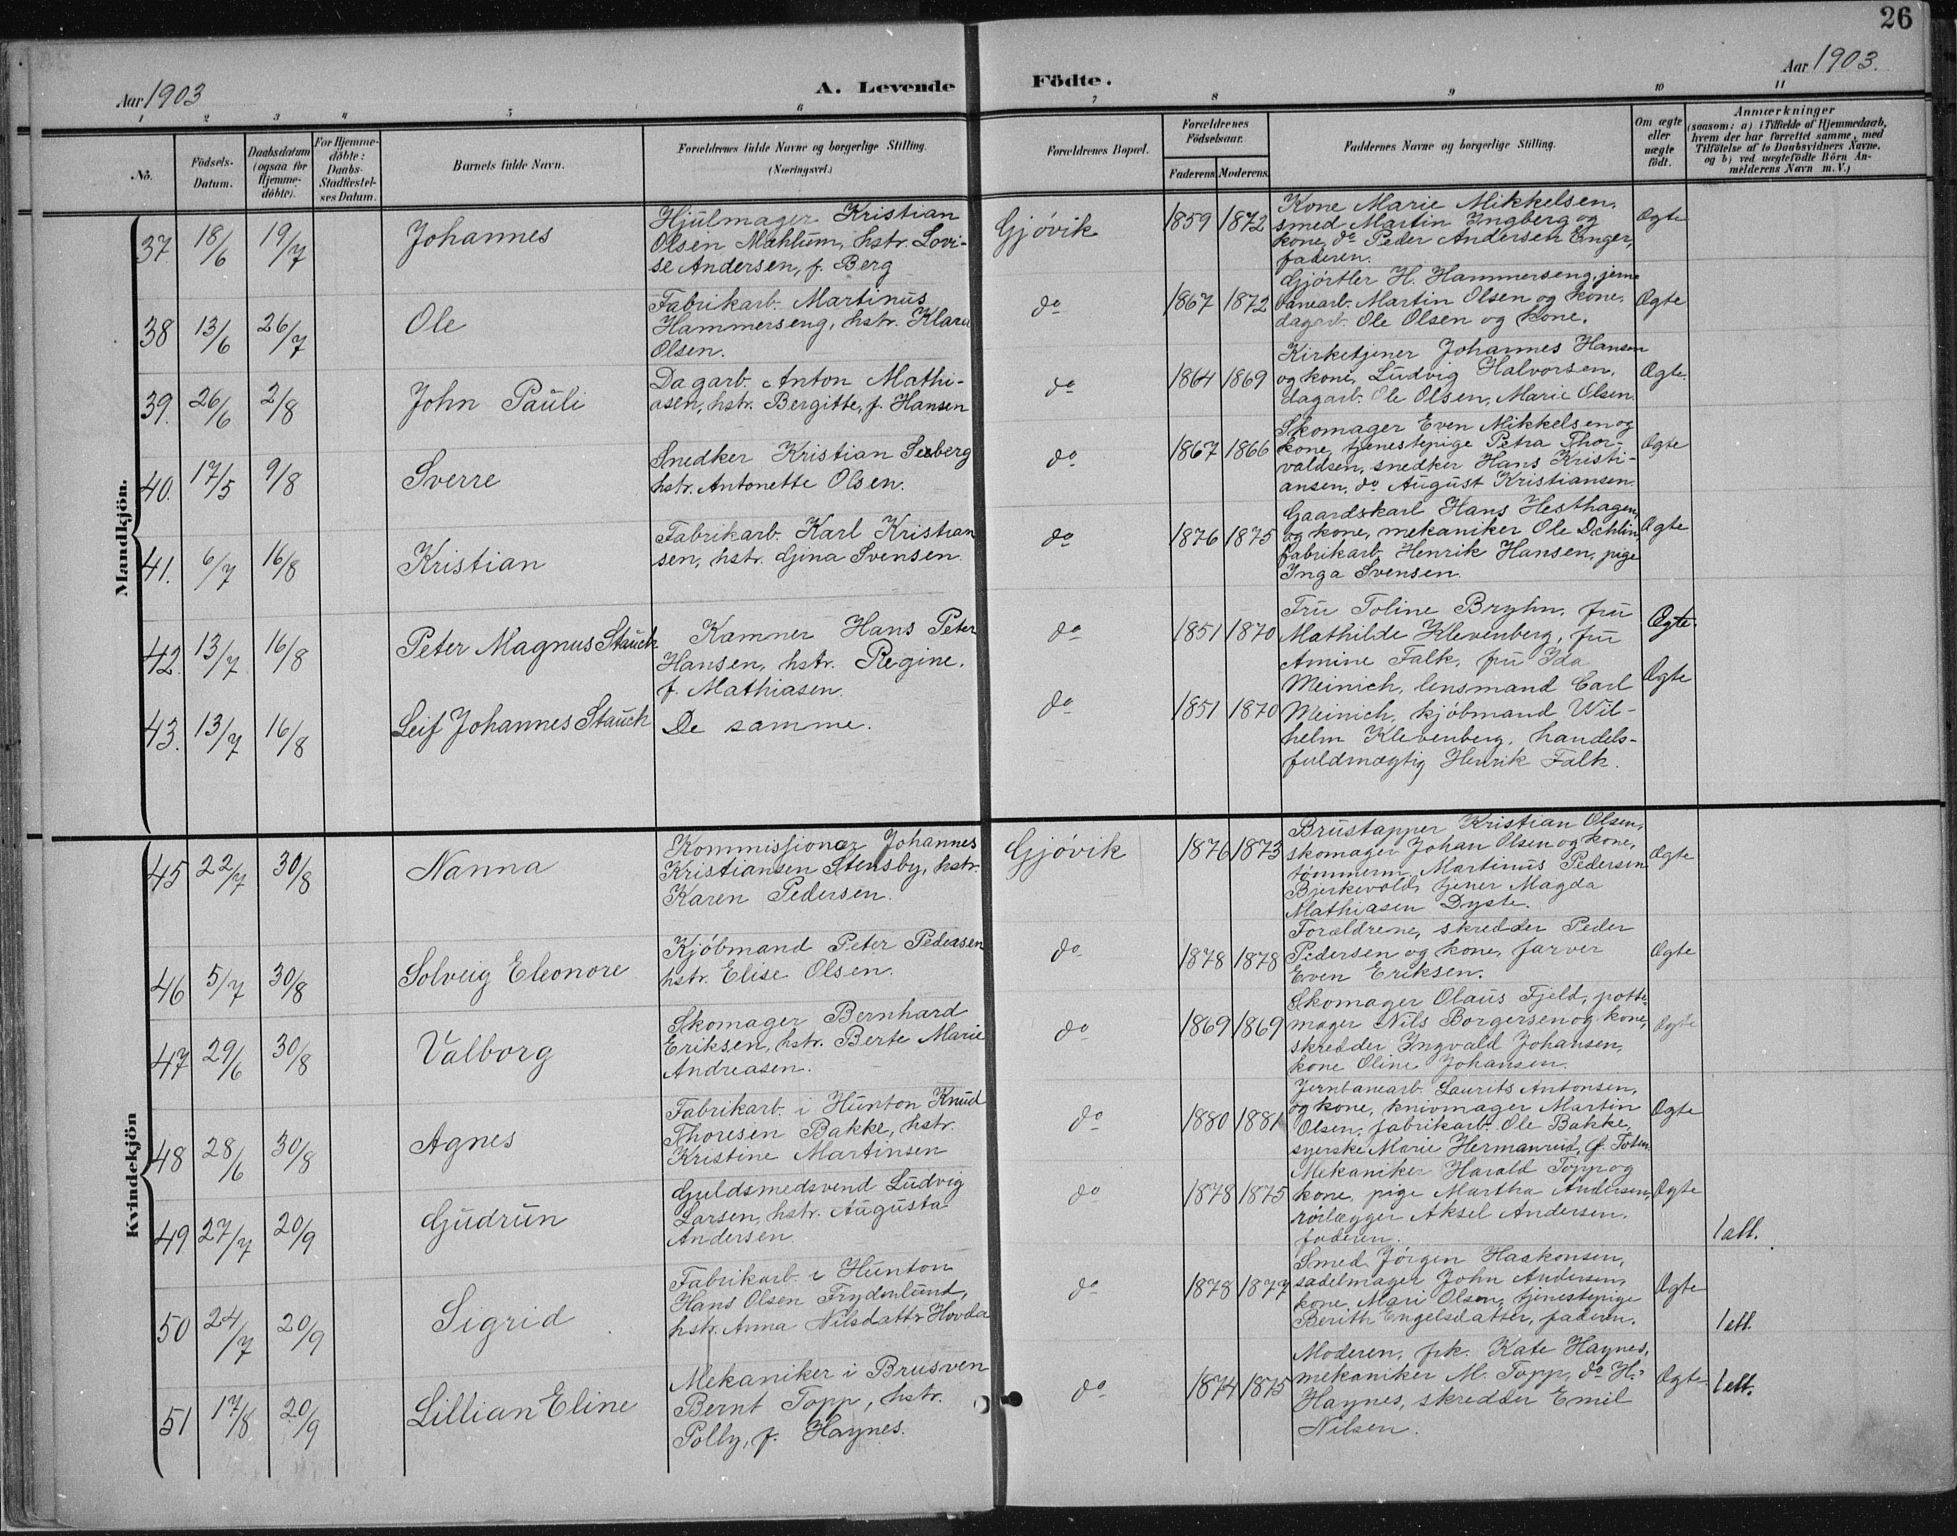 26
Aar 1903
A. Levende Födte.
Aar 1903.
1 2 3 4 5 6 7 8 9 10 11
No.
Födsels-
Datum.
Daabsdatum
(ogsaa for
Hjemme-
döbte).
For Hjemme-
döbte:
Daabs-
Stadfæstel-
ses Datum.
Barnets fulde Navn.
Forældrenes fulde Navne og borgerlige Stilling.
(Næringsvei.)
Forældrenes Bopæl.
Forældrenes
Födselsaar.
Faderens. Moderens.
Faddernes Navne og borgerlige Stilling.
Om ægte
eller
uægte
født.
Anmærkninger
(saasom: a) i Tilfælde af Hjemmedaab,
hvem der har forrettet samme, med
Tilföielse af to Daabsvidners Navne,
og b) ved uægtefödte Börn An-
melderens Navn m. V.)
Mandkjön.
37 18/6 19/7 Johannes
Hjulmager Kristian
Olsen Mæhlum, hstr. Lovi-
se Andersen, f. Berg
Gjövik 1859 1872
Kone Marie Mikkelsen,
smed Martin Ingberg og
kone, do Peder Andersen Enger,
faderen.
Ægte
38 13/6 26/7 Ole
Fabrikarb. Martinus
Hammerseng, hstr. Klara
Olsen.
do 1867 1872
Gjörtler H. Hammerseng, jern-
banearb. Martin Olsen og kone,
dagarb. Ole Olsen og kone.
Ægte
39. 26/6 2/8 John Pauli
Dagarb. Anton Mathi-
asen, hstr. Bergitte, f. Hansen
do 1864 1869
Kirketjener Johannes Hansen
og kone, Ludvig Halvorsen,
dagarb. Ole Olsen, Marie Olsen.
Ægte.
40. 17/5 9/8 Sverre
Snedker Kristian Seeberg
hstr. Antonette Olsen.
do 1867 1866
Skomager Even Mikkelsen og
kone, tjenestepige Petra Thor-
valdsen, snedker Hans Kristi-
ansen, do August Kristiansen.
Ægte
41. 6/7 16/8 Kristian
Fabrikarb. Karl Kristian
sen, hstr. Gina Svensen.
do 1876 1875
Gaardskarl Hans Hesthagen
og kone, mekaniker Ole Dehlin
fabrikarb. Henrik Hansen, pige
Inga Svensen.
Ægte
42. 13/7 16/8 Peter Magnus Stauch
Kæmner Hans Peter
Hansen, hstr. Regine.
f. Mathiasen.
do 1851 1870
Fru Toline Bryhn, fru
Mathilde Klevenberg, fru
Amine Falk, fru Ida
Meinich, lensmand Carl
Ægte
43. 13/7 16/8 Leif Johannes Stauch
De samme.
do 1851 1870
Meinich, kjöbmand Wil-
helm Klevenberg, handels-
fuldmægtig Henrik Falk.
Ægte
Kvindekjön
45 22/7 30/8 Nanna
Kommissionær Johannes
Kristiansen Stensby, hstr.
Karen Pedersen.
Gjövik 1876 1873
Brustapper Kristian Olsen,
skomager Johan Olsen og kone,
tömmerm. Martinus Pedersen
Bjerkevold, tjener Magda
Mathiasen Dyste.
Ægte
46 5/7 30/8 Solveig Eleonore
Kjöbmand Peter Pedersen
hstr. Elise Olsen.
do 1878 1878
Forældrene, skredder Peder
Pedersen og kone, farver
Even Eriksen.
Ægte
47 29/6 30/8 Valborg
Skomager Bernhard
Eriksen, hstr. Berte Marie
Andreasen.
do 1869 1869
Skomager Olaus Fjeld, potte-
mager Nils Borgersen og kone,
skredder Ingvald Johansen,
kone Oline Johansen.
Ægte
48 28/6 30/8 Agnes
Fabrikarb. i Hunton Knud
Thoresen Bakke, hstr.
Kristine Martinsen
do 1880 1881
Jernbanearb. Laurits Antonsen,
og kone, knivmager Martin
Olsen, fabrikarb. Ole Bakke,
syerske Marie Hermanrud, Ö. Toten
Ægte
49 27/7 20/9 Gudrun
Guldsmedsvend Ludvig
Larsen, hstr. Augusta
Andersen
do 1878 1875
Mekaniker Harald Topp og
kone, pige Martha Andersen,
rörlægger Aksel Andersen,
faderen.
Ægte
1 att.
50 24/7 20/9 Sigrid
Fabrikarb. i Hunton
Hans Olsen Frydenlund,
hstr. Anna Nilsdattr Hovda
do 1878 1877
Smed Jörgen Haakonsen,
sadelmager John Andersen,
kone Mari Olsen, tjenestepige
Berith Engelsdatter, faderen.
Ægte
1 att.
51 17/8 20/9 Lillian Eline
Mekaniker i Brusven
Bernt Topp, hstr.
Polly, f. Haynes.
do 1874 1875
Moderen, frk. Kate Haynes,
mekaniker M. Topp, do H.
Haynes, skredder Emil
Nilsen.
Ægte
1 att.